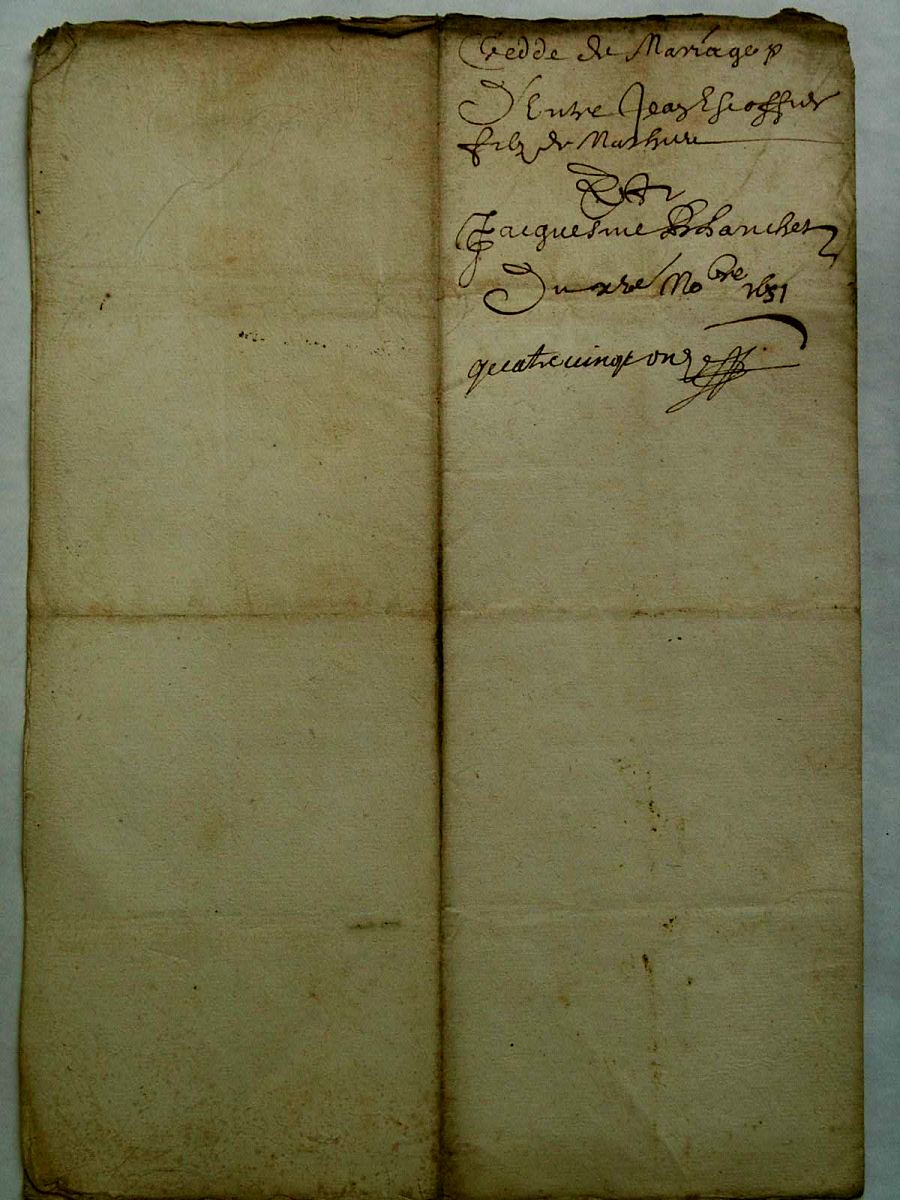 Cedde de Mariage p
D'Entre Jean Escoffier
filz de Mathieu
Et
Jacquesme Blanchet
Du xxe No bre 1651
quatre vingt onz